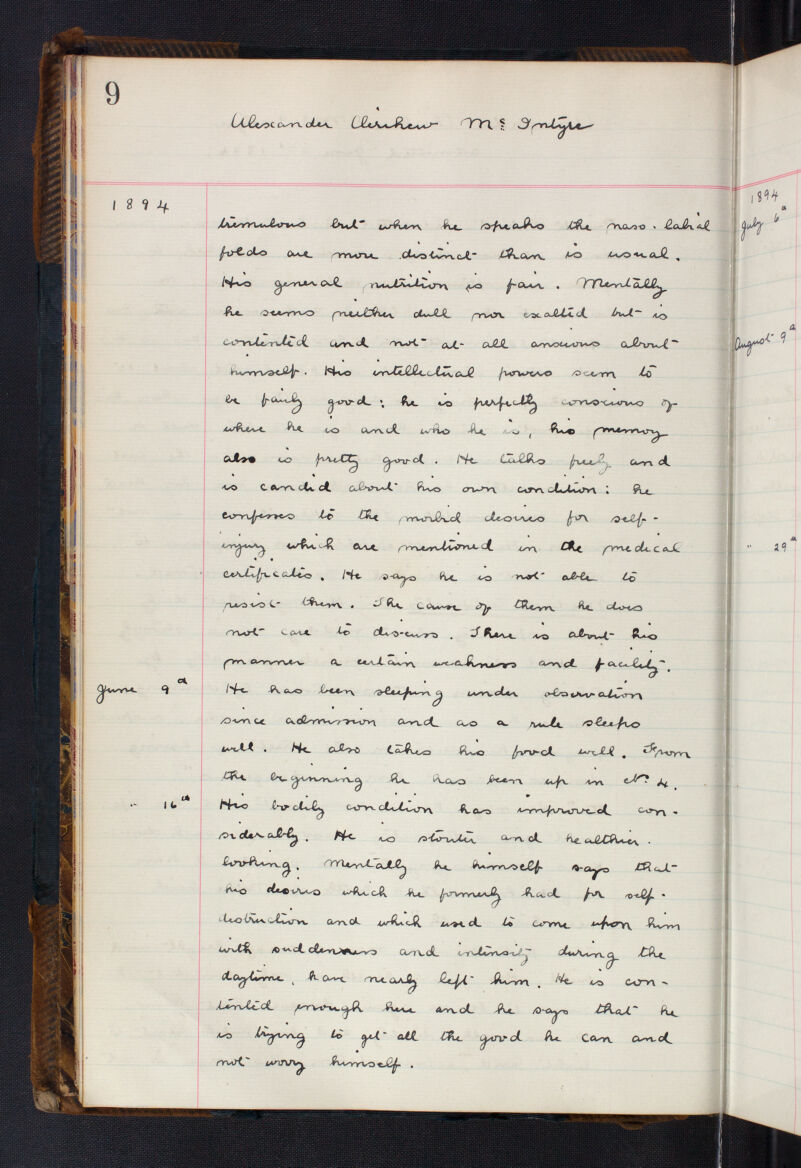 9
Alexander Clerihew Mc Intyre
1894
tremulous but when he speaks the naso-labial
folds are more distinct than is usual.
His general nutrition is fair. Mentally
he seems neither dull nor exalted but is
contented and not at all anxious about
himself. His intellectual powers seem to
be fairly good: he is perfectly conscious of
where he is and who he is, his memory
also is pretty good. He talks freely and
is candid about his own condition: he
confesses to the morbid desires for self-
injury which are mentioned in the medical
certificates. He says he is not able to
resist them. The cause of them he does
not care to discuss. There is about his
manner a certain weakness and facility.
June 9th He has been sleeping under observation
since admission and as a rule sleeps
well. He also takes his food well. From
the beginning he has been up in No. 4.
" 16th His bodily condition has improved con-
siderably. He is stouter and healthier-
looking. Mentally he himself says that
his desires which he formerly had for self-
destruction and which used to come upon him
with suddenness and intensity during the
daytime, have nearly left him. He is con-
tented enough here and he says that he
is trying to get all the good he can and
not worry himself.
1894
July 6th
August 9th
" 29th